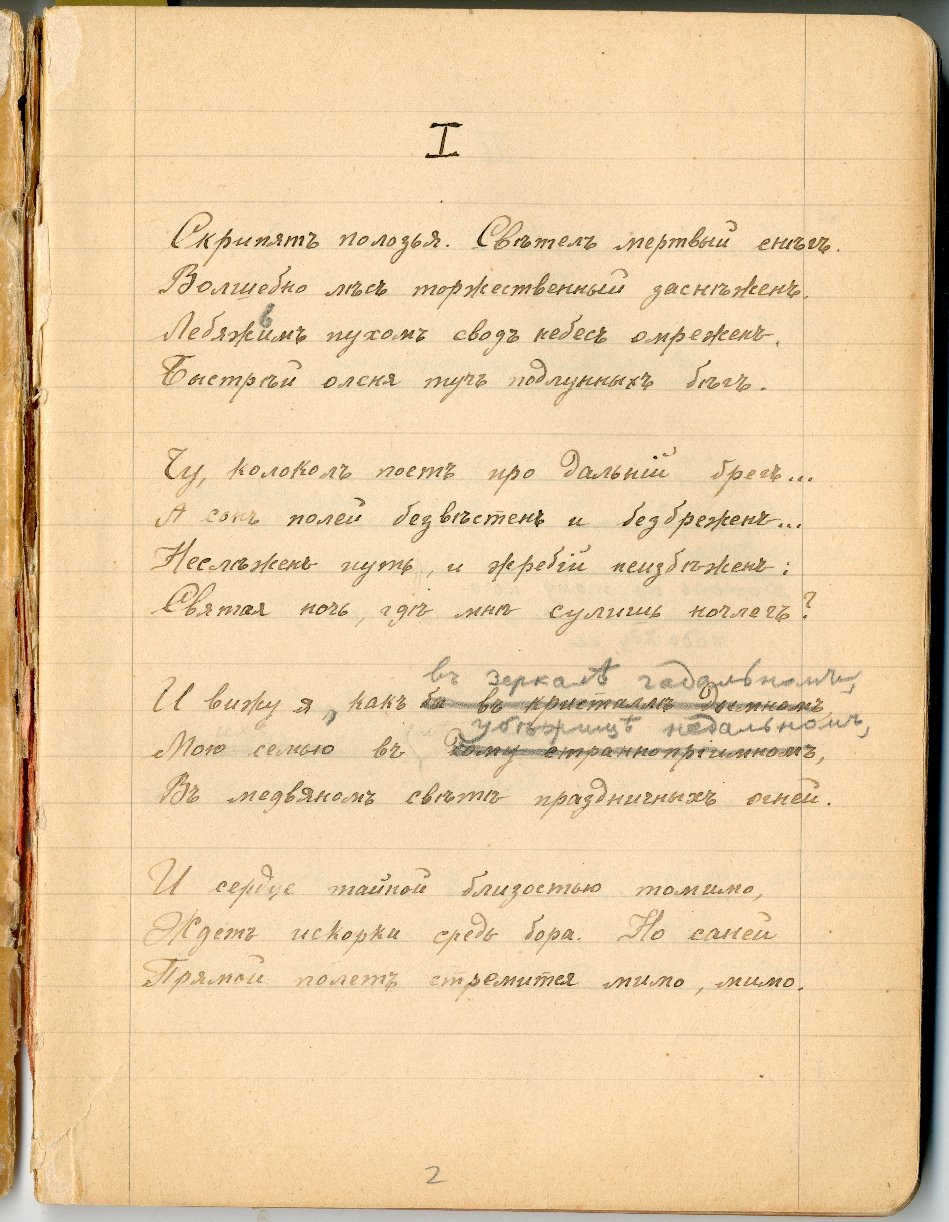 I
Скрипятъ полозья. Свѣтелъ мертвый снѣгъ.
Волшебно лѣсъ торжественный заснѣженъ.
Лебяжьимъ пухомъ сводъ небесъ омреженъ.
Быстрѣй оленя тучъ подлунныхъ бѣгъ.
Чу, колоколъ поетъ про дальній брегъ...
А сонъ полей безвѣстенъ и безбреженъ...
Неслѣженъ путь, и жребій неизбѣженъ:
Святая ночь, гдѣ мнѣ сулишь ночлегъ?
въ зеркалѣ гадальномъ,
И вижу я, какъ бы въ кристаллѣ дымномъ,
убѣжищѣ недальномъ,
Мою семью въ дому страннопріимномъ,
Въ медвяномъ свѣтѣ праздничныхъ огней.
И сердце тайной близостью томимо,
Ждетъ искорки средь бора. Но саней
Прямой полетъ стремится мимо, мимо.
2